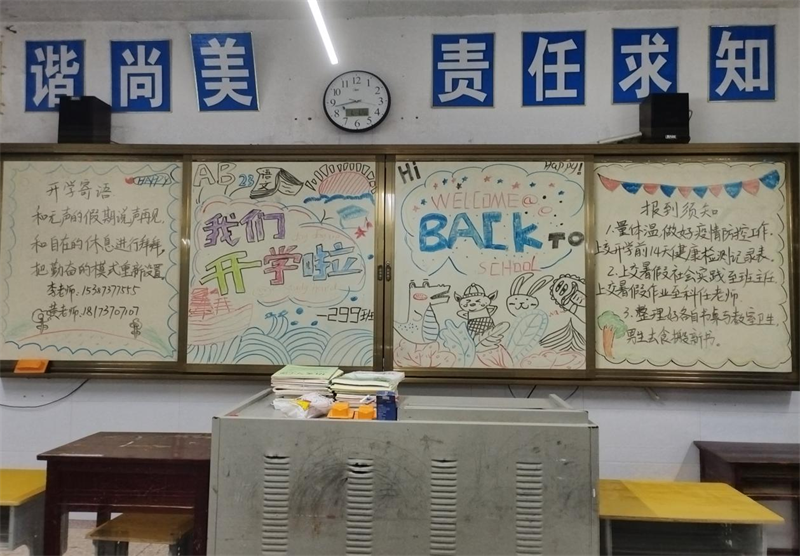 谐 尚 美 责 任 求 知
开学寄语
Happy
和无声的假期说声再见
和自在的休息进行拜拜
把勤奋的模式重新设置
李老师.15387371555
AB
语文
我们
开学啦
299班
Hi
Happy!
WELCOME
BACK TO
SCHOOL
报到须知
1.量体温,做好疫情防控工作.
上交开学前14天健康检测记录表.
2.上交暑假社会实践至班主任
上交暑假作业至科任老师
3.整理好各自书桌与教室卫生
男生去食搬新书.